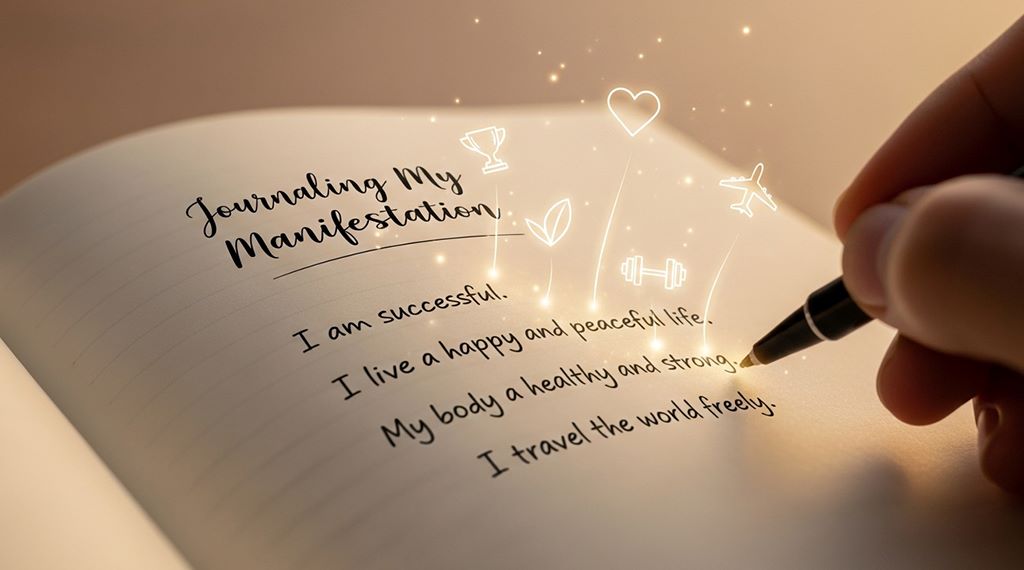 Journaling My
Manifestation
I am successful.
I live a happy and peaceful life.
My body a healthy and strong.
I travel the world freely.